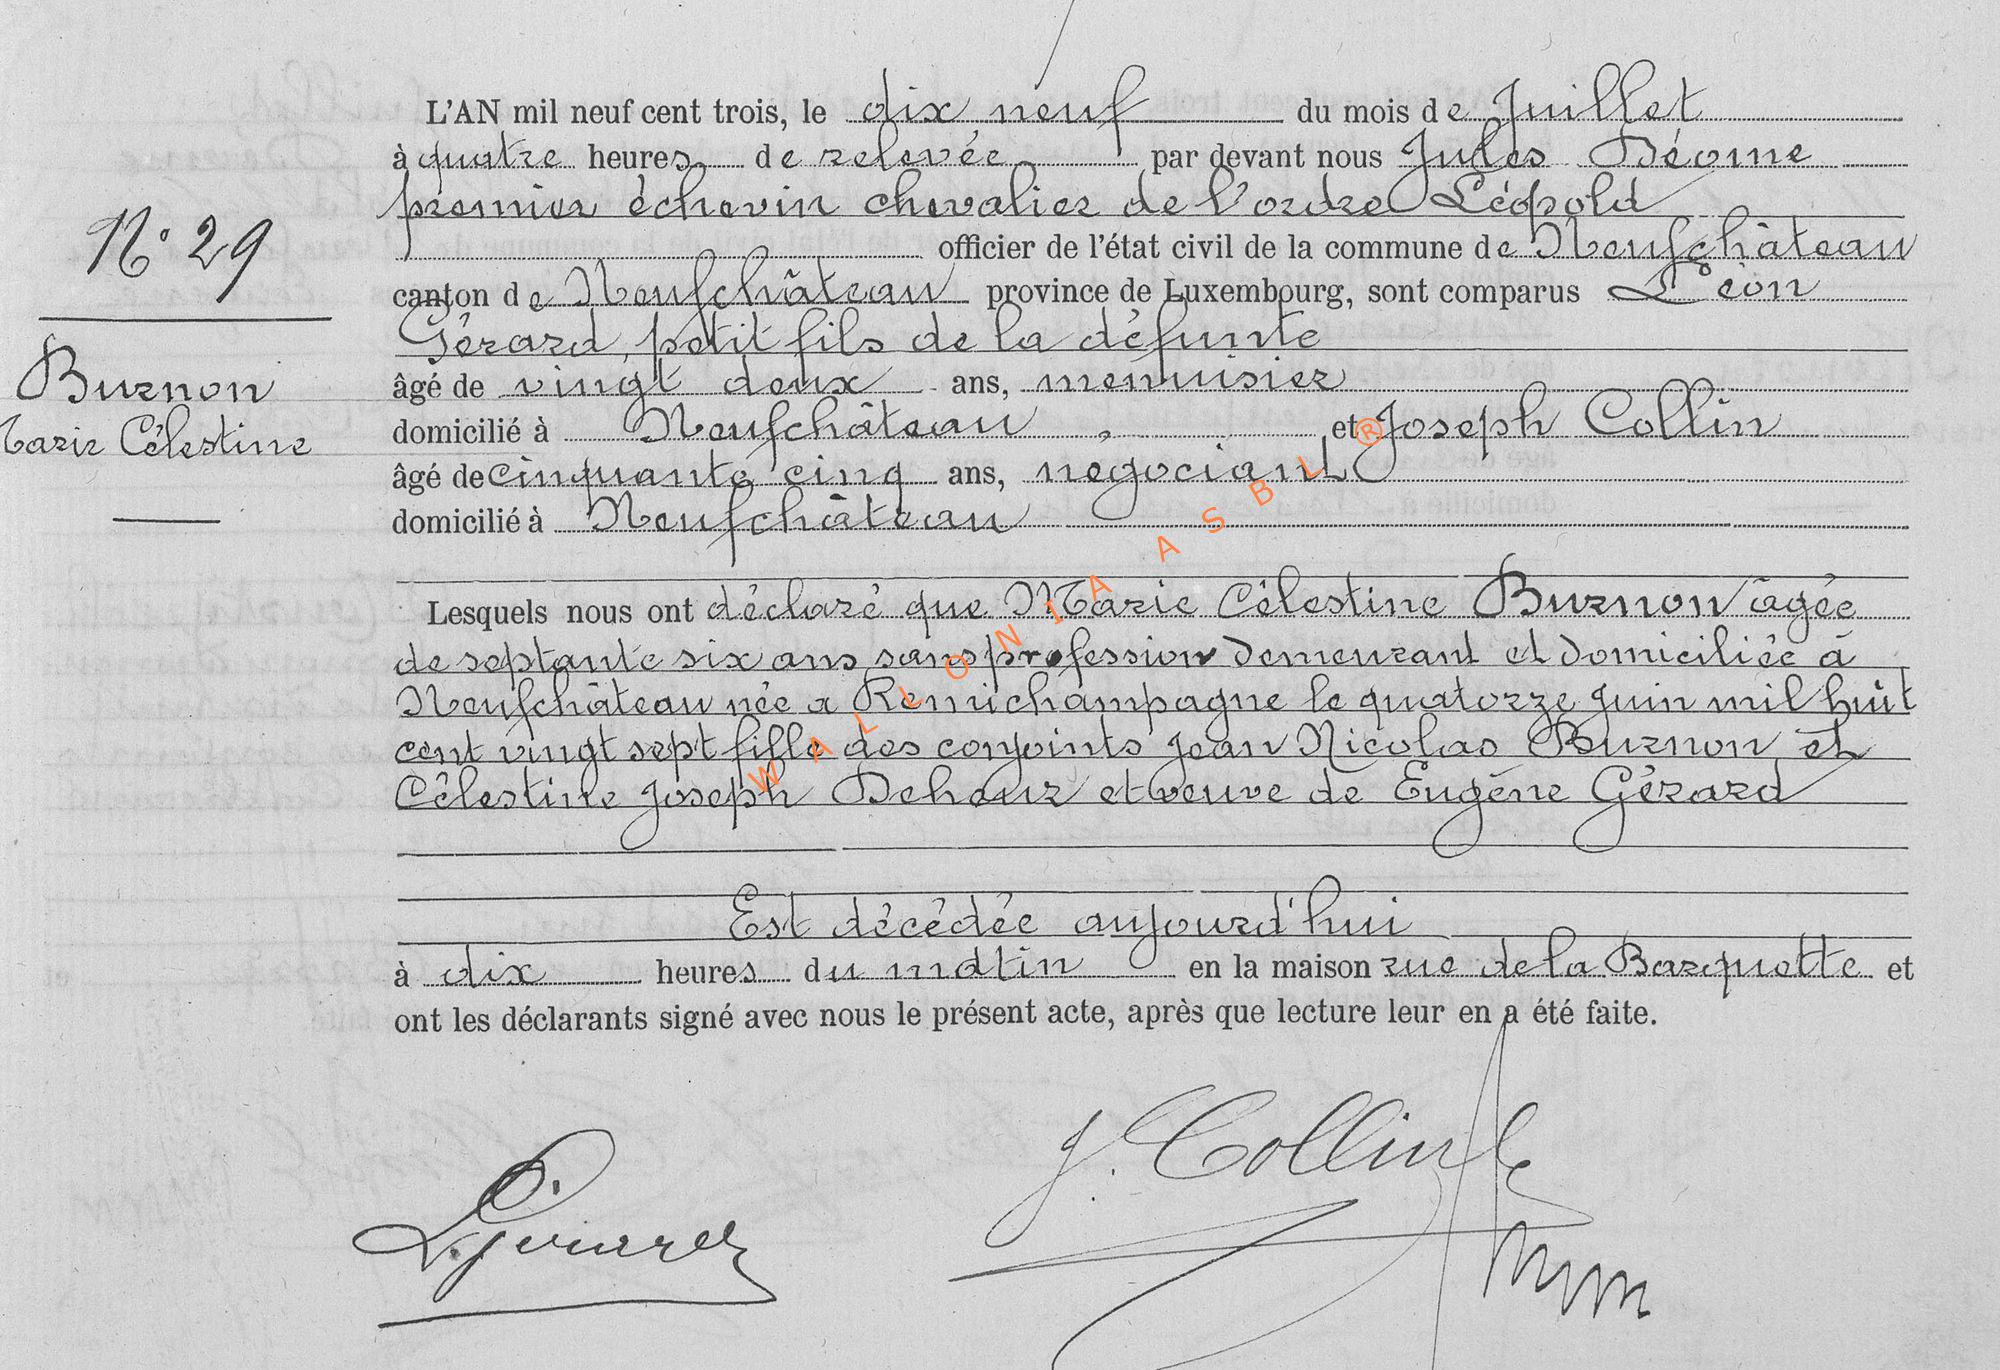 L'AN mil neuf cent trois, le dix neuf du mois de Juillet
à quatre heures de relevée par devant nous Jules
premier échevin chevalier de l'ordre Léopold
officier de l'état civil de la commune de Neufchâteau
N° 29
canton de Neufchâteau province de Luxembourg, sont comparus Léon
Gérard, petit fils de la défunte
Burnon
âgé de vingt deux ans, menuisier
Marie Célestine
domicilié à Neufchâteau, et Joseph Collin
âgé de cinquante cinq ans, negociant
domicilié à Neufchâteau
Lesquels nous ont déclaré que Marie Célestine Burnon âgée
de septante six ans sans profession demeurant et domiciliée à
Neufchâteau née a Remichampagne le quatorze juin mil huit
cent vingt sept fille des conjoints Jean Nicolas Burnon et
Célestine Joseph et veuve de Eugène Gérard
Est décédée aujourd'hui
à dix heures du matin en la maison rue de la Barquette et
ont les déclarants signé avec nous le présent acte, après que lecture leur en a été faite.
J. Collin
L. Gérard
WALLONIA ASBL ®